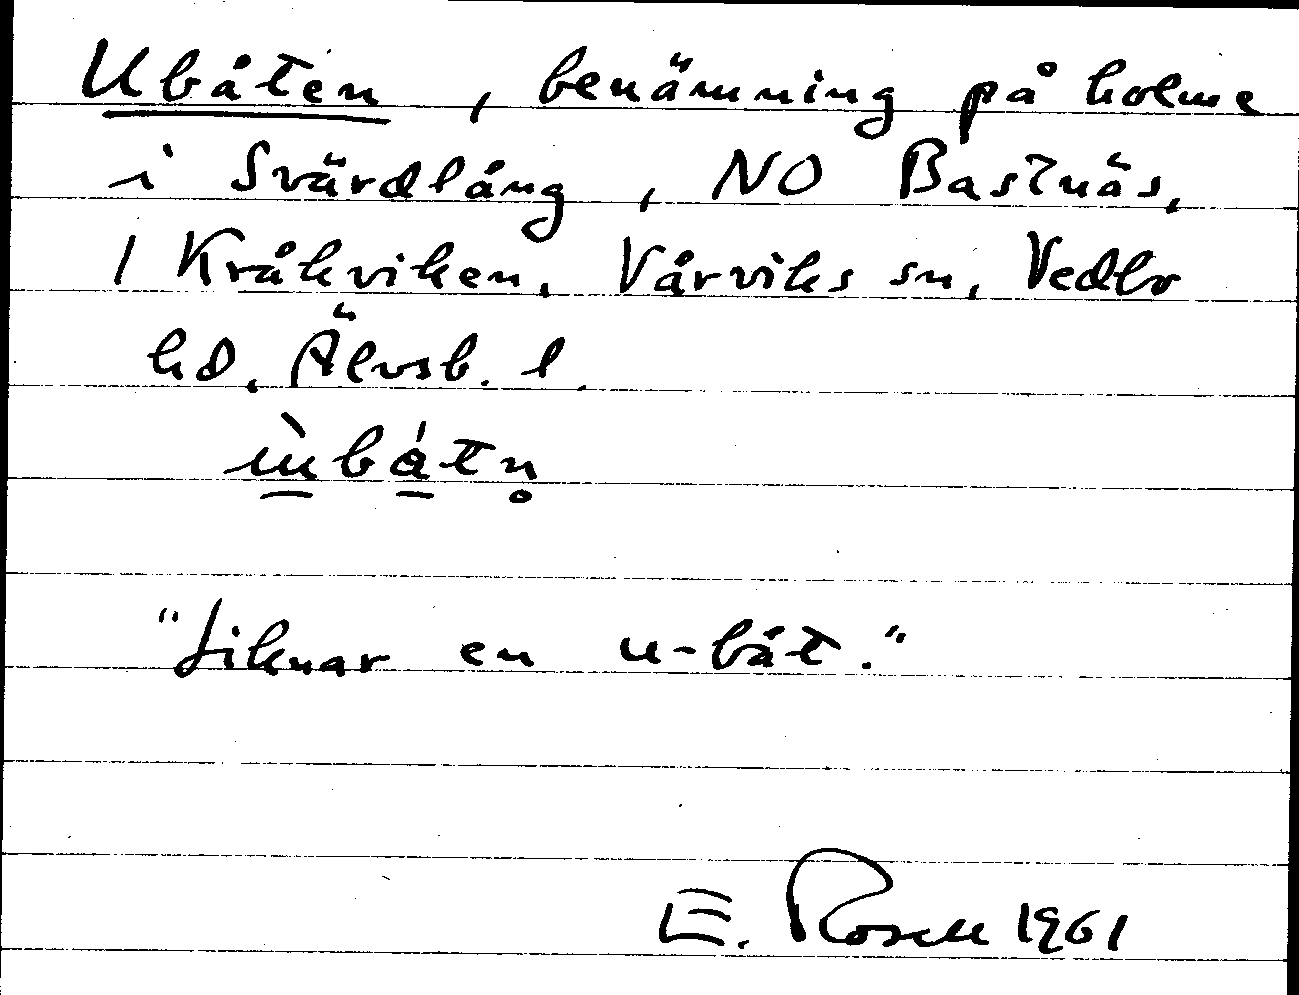 Ubåten, benämning på holme
i Svärdlång, NO Bastnäs,
i Kråkviken. Vårviks sn, Vedbo
hd. Älvsb. l.
ùbátn̥
"Liknar en u-båt."
E. Rosell 1961